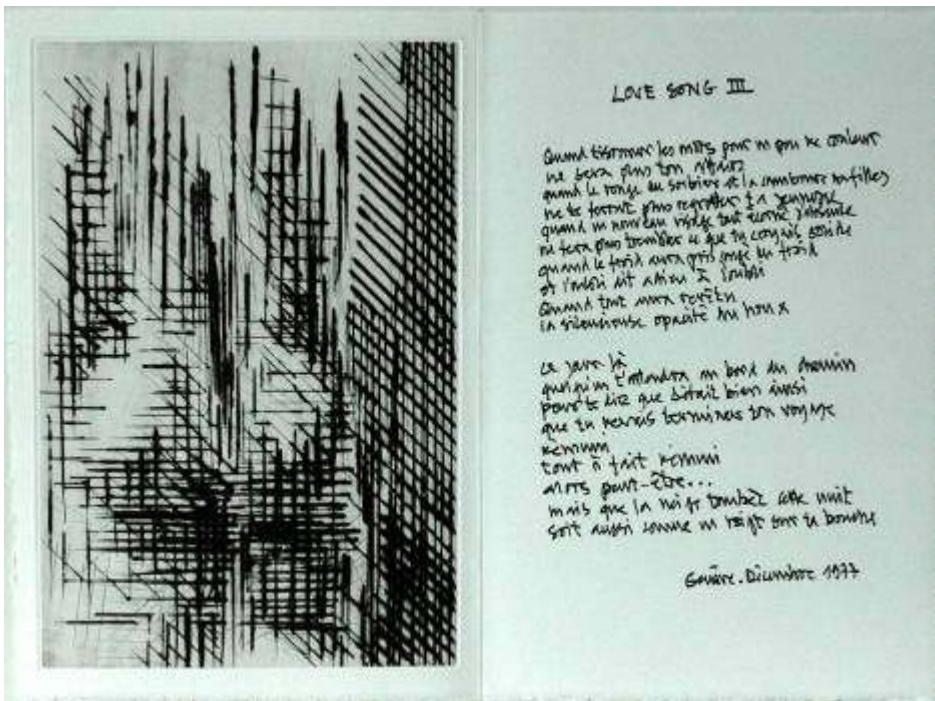 LOVE SONG III
Quand tisonner les mots pour un peu de couleur
ne sera plus ton affaire
quand le rouge du sorbier et la cambrure des filles
ne te feront plus regretter ta jeunesse
quand un nouveau visage tout écorné d'absence
ne fera plus trembler ce que tu croyais solide
quand le froid aura pris congé du froid
et l'oubli dit adieu à l'oubli
Quand tout aura revêtu
la silencieuse opacité du houx
Ce jour là
quelqu'un t'attendra au bord du chemin
pour te dire que c'était bien ainsi
que tu devais terminer ton voyage
démuni
tout à fait démuni
alors peut-être...
mais que la neige tombée cette nuit
soit aussi comme un doigt sur ta bouche
Genève. Décembre 1977